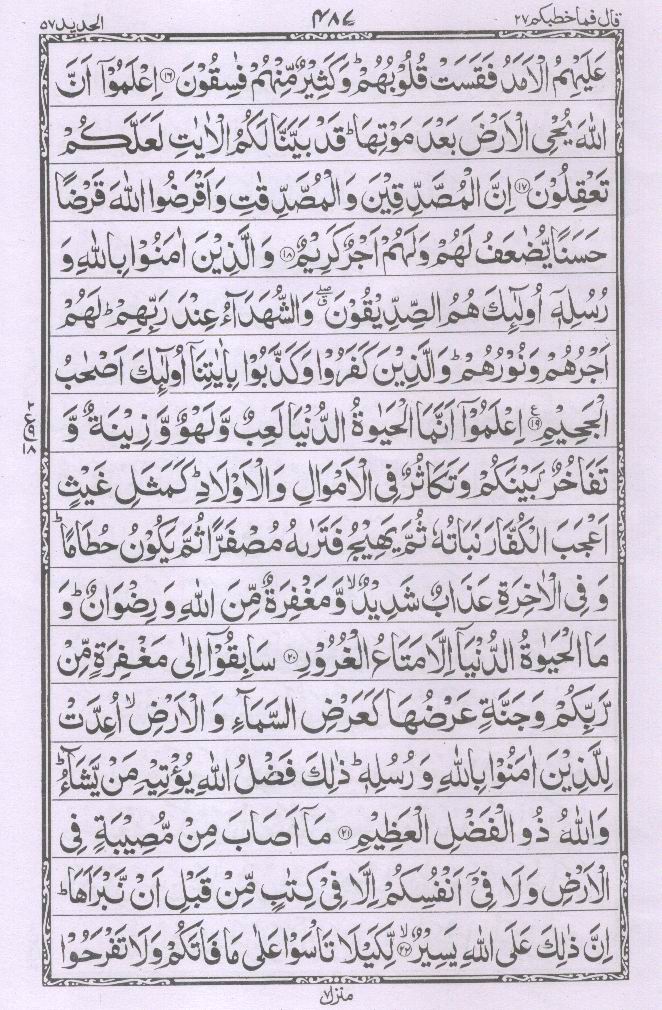 قال فما خطبكم ٢٧
٤٨٧
الحديد ٥٧
عَلَيْهِمُ الْاَمَدُ فَقَسَتْ قُلُوْبُهُمْ ؕ وَكَثِيْرٌ مِّنْهُمْ فٰسِقُوْنَ ﴿۱۶﴾ اِعْلَمُوْۤا اَنَّ
اللّٰهَ يُحْيِ الْاَرْضَ بَعْدَ مَوْتِهَا ؕ قَدْ بَيَّنَّا لَكُمُ الْاٰيٰتِ لَعَلَّكُمْ
تَعْقِلُوْنَ ﴿۱۷﴾ اِنَّ الْمُصَّدِّقِيْنَ وَالْمُصَّدِّقٰتِ وَاَقْرَضُوا اللّٰهَ قَرْضًا
حَسَنًا يُّضٰعَفُ لَهُمْ وَلَهُمْ اَجْرٌ كَرِيْمٌ ﴿۱۸﴾ وَالَّذِيْنَ اٰمَنُوْا بِاللّٰهِ وَ
رُسُلِهٖۤ اُولٰٓئِكَ هُمُ الصِّدِّيْقُوْنَ ۖۗ وَالشُّهَدَآءُ عِنْدَ رَبِّهِمْ ؕ لَهُمْ
اَجْرُهُمْ وَنُوْرُهُمْ ؕ وَالَّذِيْنَ كَفَرُوْا وَكَذَّبُوْا بِاٰيٰتِنَاۤ اُولٰٓئِكَ اَصْحٰبُ
الْجَحِيْمِ ﴿۱۹﴾ اِعْلَمُوْۤا اَنَّمَا الْحَيٰوةُ الدُّنْيَا لَعِبٌ وَّلَهْوٌ وَّزِيْنَةٌ وَّ
تَفَاخُرٌۢ بَيْنَكُمْ وَتَكَاثُرٌ فِى الْاَمْوَالِ وَالْاَوْلَادِ ؕ كَمَثَلِ غَيْثٍ
اَعْجَبَ الْكُفَّارَ نَبَاتُهٗ ثُمَّ يَهِيْجُ فَتَرٰىهُ مُصْفَرًّا ثُمَّ يَكُوْنُ حُطَامًا ؕ
وَفِى الْاٰخِرَةِ عَذَابٌ شَدِيْدٌ ۙ وَّمَغْفِرَةٌ مِّنَ اللّٰهِ وَرِضْوَانٌ ؕ وَ
مَا الْحَيٰوةُ الدُّنْيَاۤ اِلَّا مَتَاعُ الْغُرُوْرِ ﴿۲۰﴾ سَابِقُوْۤا اِلٰى مَغْفِرَةٍ مِّنْ
رَّبِّكُمْ وَجَنَّةٍ عَرْضُهَا كَعَرْضِ السَّمَآءِ وَالْاَرْضِ ۙ اُعِدَّتْ
لِلَّذِيْنَ اٰمَنُوْا بِاللّٰهِ وَرُسُلِهٖ ؕ ذٰلِكَ فَضْلُ اللّٰهِ يُؤْتِيْهِ مَنْ يَّشَآءُ ؕ
وَاللّٰهُ ذُو الْفَضْلِ الْعَظِيْمِ ﴿۲۱﴾ مَاۤ اَصَابَ مِنْ مُّصِيْبَةٍ فِى
الْاَرْضِ وَلَا فِىْۤ اَنْفُسِكُمْ اِلَّا فِىْ كِتٰبٍ مِّنْ قَبْلِ اَنْ نَّبْرَاَهَا ؕ
اِنَّ ذٰلِكَ عَلَى اللّٰهِ يَسِيْرٌ ﴿۲۲﴾ لِّكَيْلَا تَاْسَوْا عَلٰى مَا فَاتَكُمْ وَلَا تَفْرَحُوْا
منزل ٧